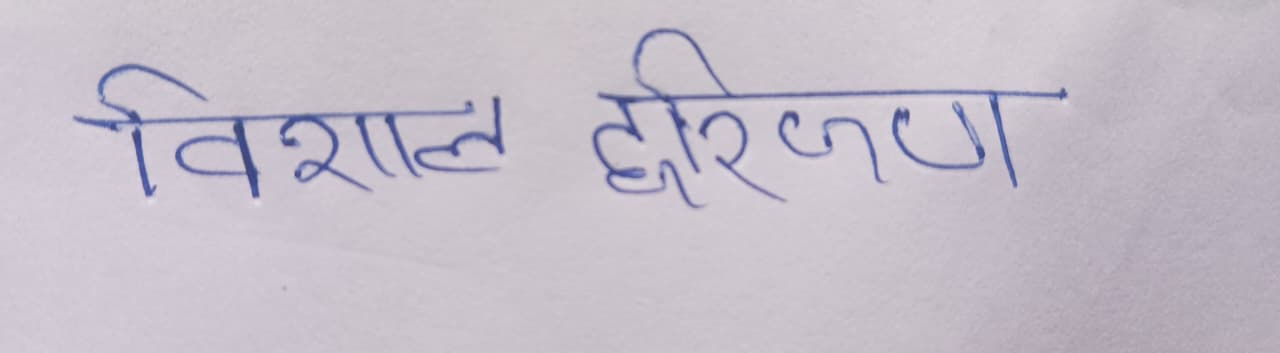 विशाल हरिजण